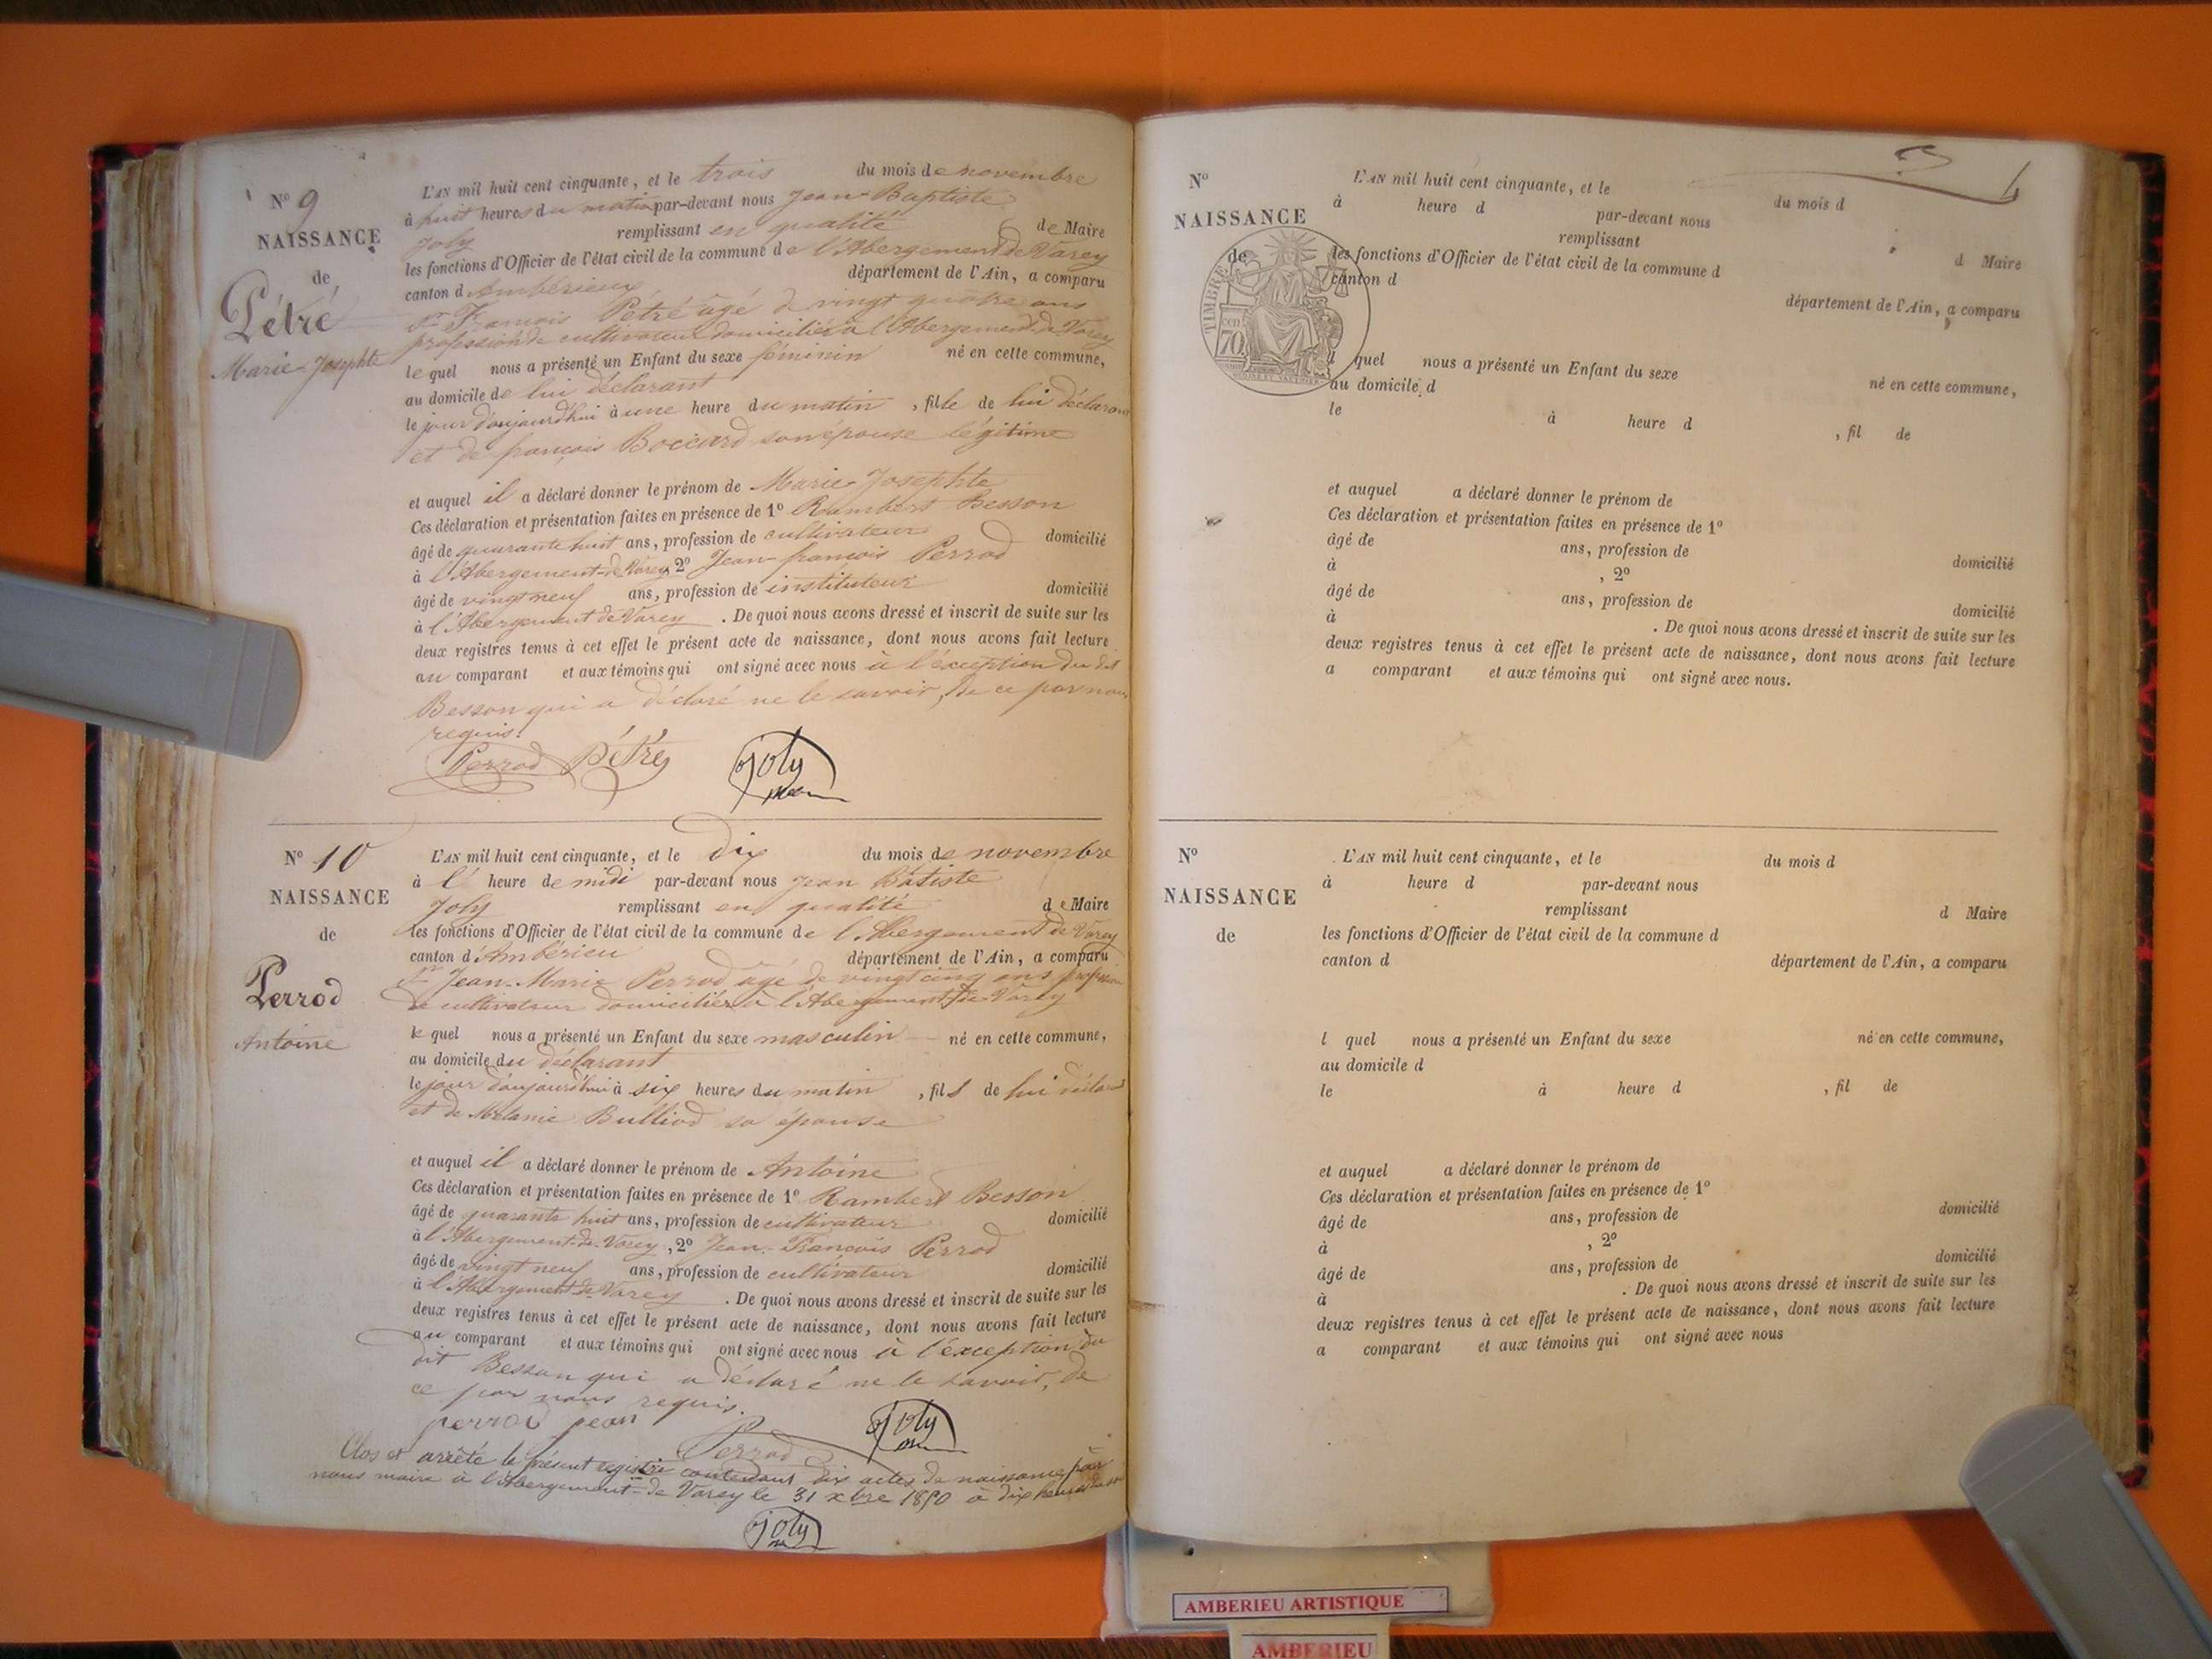 N° 9
NAISSANCE
de
Pétré
Marie-Josephte
L'AN mil huit cent cinquante, et le trois du mois de novembre
à huit heures du matin par-devant nous Jean-Baptiste
Joly remplissant en qualité de Maire
les fonctions d'Officier de l'état civil de la commune de l'Abergement de Varey
canton d'Ambérieux département de l'Ain, a comparu
Sr François Pétré âgé de vingt quatre ans
profession de cultivateur domicilié à l'Abergement de Varey
lequel nous a présenté un Enfant du sexe féminin né en cette commune,
au domicile de lui déclarant
le jour d'aujourd'hui à une heure du matin, fille de lui déclarant
et de françois Boccard son épouse légitime
et auquel il a déclaré donner le prénom de Marie-Josephte
Ces déclaration et présentation faites en présence de 1° Rambert Besson
âgé de quarante huit ans, profession de cultivateur domicilié
à l'Abergement-de Varey, 2° Jean-françois Perrod
âgé de vingt neuf ans, profession de instituteur domicilié
à l'Abergement de Varey. De quoi nous avons dressé et inscrit de suite sur les
deux registres tenus à cet effet le présent acte de naissance, dont nous avons fait lecture
au comparant et aux témoins qui ont signé avec nous à l'exception du dit
Besson qui a déclaré ne le savoir, de ce par nous
requis.
Perrod Pétré Joly
N° 10
NAISSANCE
de
Perrod
Antoine
L'AN mil huit cent cinquante, et le dix du mois de novembre
à l' heure de midi par-devant nous Jean Batiste
Joly remplissant en qualité de Maire
les fonctions d'Officier de l'état civil de la commune de l'Abergement de Varey
canton d'Ambérieu département de l'Ain, a comparu
Sr Jean-Marie Perrod âgé de vingt cinq ans profession
de cultivateur domicilié à l'Abergement de Varey
lequel nous a présenté un Enfant du sexe masculin né en cette commune,
au domicile du déclarant
le jour d'aujourd'hui à six heures du matin, fils de lui déclarant
et de Mélanie Bulliod sa épouse
et auquel il a déclaré donner le prénom de Antoine
Ces déclaration et présentation faites en présence de 1° Rambert Besson
âgé de quarante huit ans, profession de cultivateur domicilié
à l'Abergement-de-Varey, 2° Jean-François Perrod
âgé de vingt neuf ans, profession de cultivateur domicilié
à l'Abergement de Varey. De quoi nous avons dressé et inscrit de suite sur les
deux registres tenus à cet effet le présent acte de naissance, dont nous avons fait lecture
au comparant et aux témoins qui ont signé avec nous à l'exception du
dit Besson qui a déclaré ne le savoir, de
ce par nous requis.
perrod jean Perrod Joly
Clos et arrêté le présent registre contenant dix actes de naissance par
nous maire à l'Abergement-de Varey le 31 xbre 1850 à dix heures du
Joly
N°
NAISSANCE
de
TIMBRE
cen
70
L'AN mil huit cent cinquante, et le du mois d
à heure d par-devant nous
remplissant d Maire
les fonctions d'Officier de l'état civil de la commune d
canton d département de l'Ain, a comparu
l quel nous a présenté un Enfant du sexe né en cette commune,
au domicile d
le à heure d , fil de
et auquel a déclaré donner le prénom de
Ces déclaration et présentation faites en présence de 1°
âgé de ans, profession de domicilié
à , 2°
âgé de ans, profession de domicilié
à . De quoi nous avons dressé et inscrit de suite sur les
deux registres tenus à cet effet le présent acte de naissance, dont nous avons fait lecture
a comparant et aux témoins qui ont signé avec nous.
N°
NAISSANCE
de
L'AN mil huit cent cinquante, et le du mois d
à heure d par-devant nous
remplissant d Maire
les fonctions d'Officier de l'état civil de la commune d
canton d département de l'Ain, a comparu
l quel nous a présenté un Enfant du sexe né en cette commune,
au domicile d
le à heure d , fil de
et auquel a déclaré donner le prénom de
Ces déclaration et présentation faites en présence de 1°
âgé de ans, profession de domicilié
à , 2°
âgé de ans, profession de domicilié
à . De quoi nous avons dressé et inscrit de suite sur les
deux registres tenus à cet effet le présent acte de naissance, dont nous avons fait lecture
a comparant et aux témoins qui ont signé avec nous
AMBERIEU ARTISTIQUE
AMBERIEU